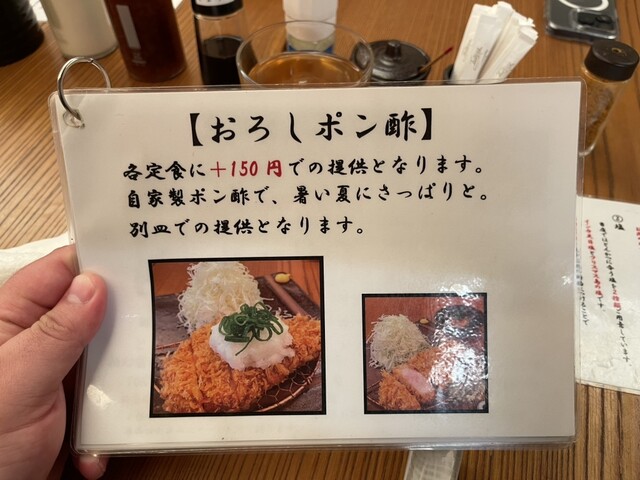 【おろしポン酢】
各定食に＋150円での提供となります。
自家製ポン酢で、暑い夏にさっぱりと。
別皿での提供となります。